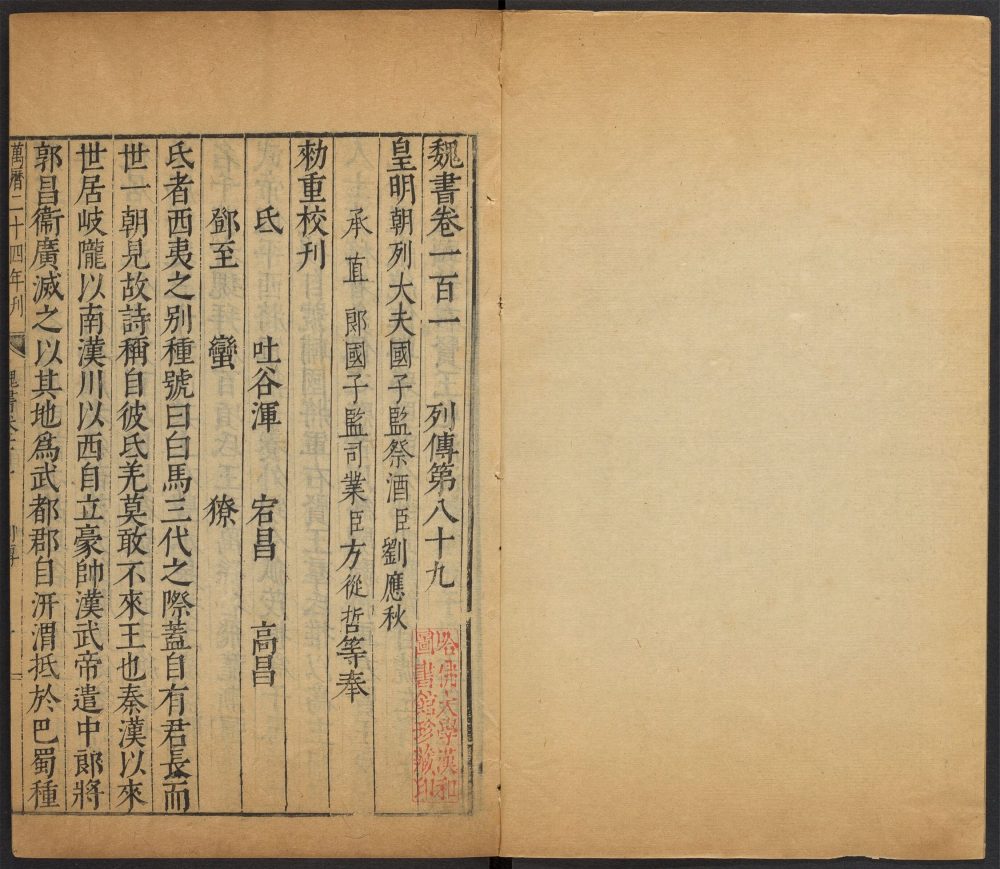 魏書卷一百一 列傳第八十九
皇明朝列大夫國子監祭酒臣劉應秋
承直郎國子監司業臣方從哲等奉
勑重校刊
氐 吐谷渾 宕昌 高昌
鄧至 蠻 獠
氐者西夷之别種號曰白馬三代之際蓋自有君長而
世一朝見故詩稱自彼氐羌莫敢不來王也秦漢以來
世居岐隴以南漢川以西自立豪帥漢武帝遣中郎將
郭昌衞廣滅之以其地爲武都郡自汧渭抵於巴蜀種
萬曆二十四年刊
哈佛大學漢和
圖書館珍藏印